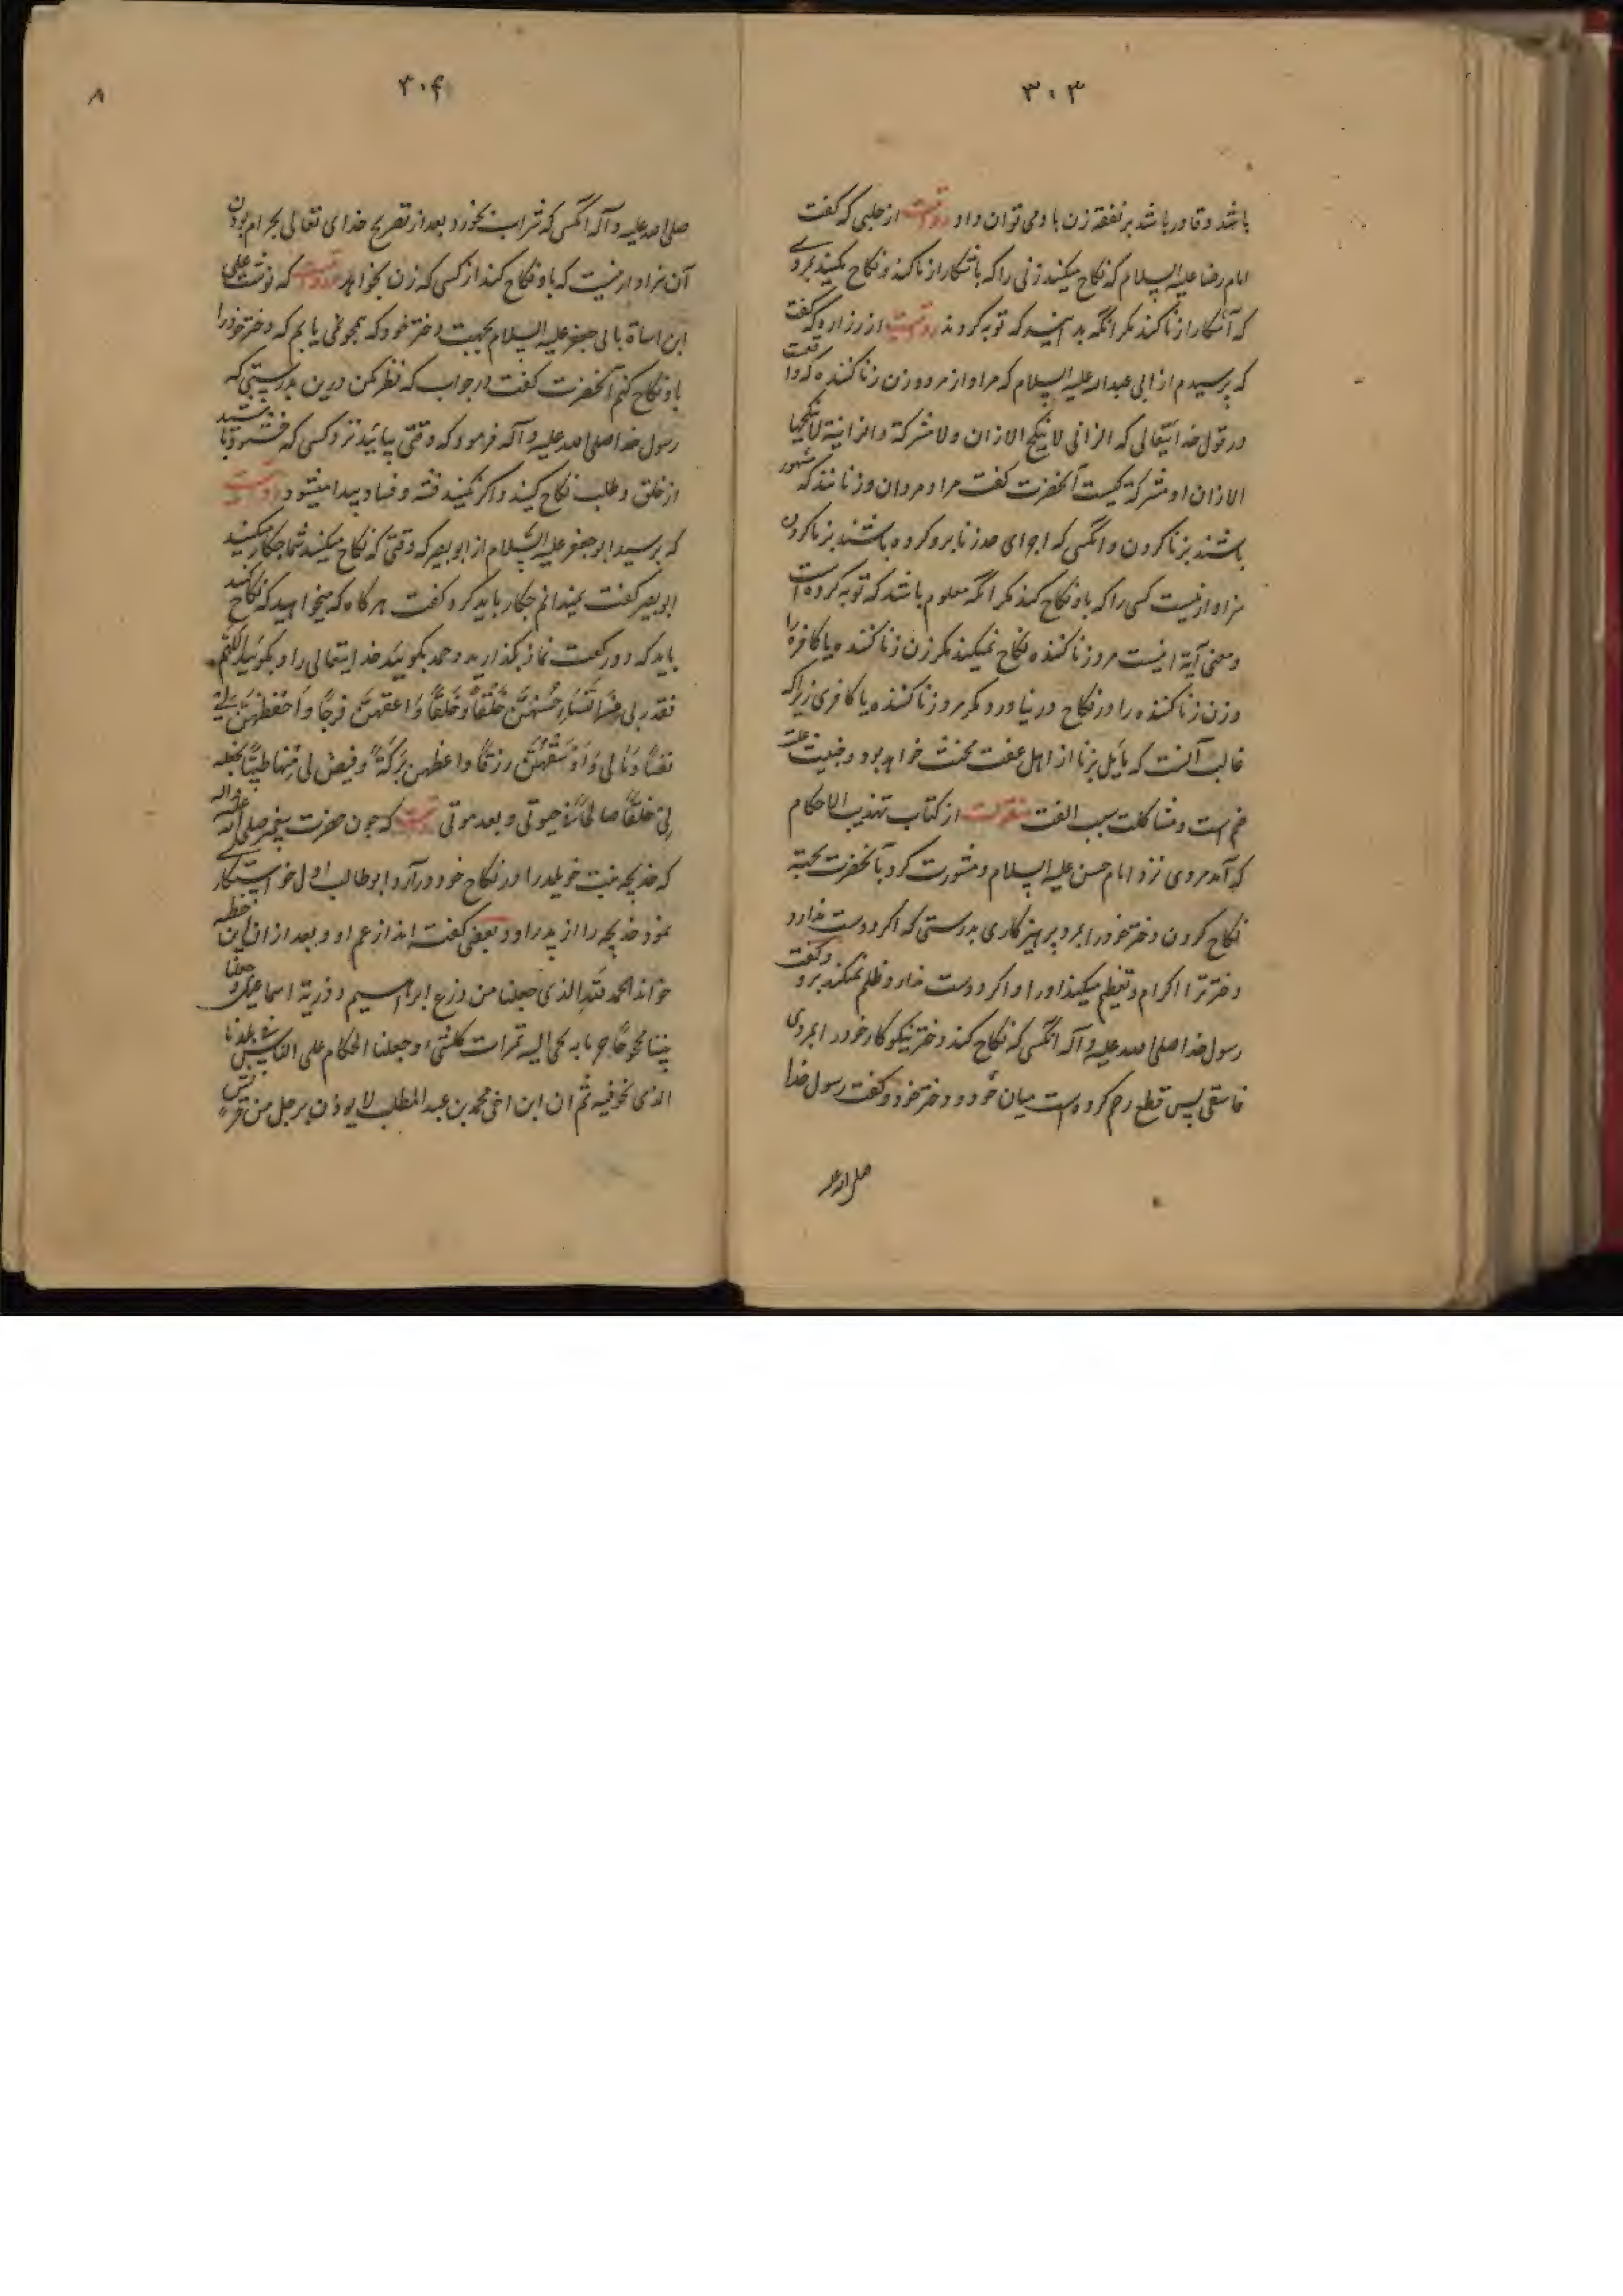 ۳۰۳
باشد و قادر باشد بر نفقه زن با و می توان داد روایتست از حلبی که گفت
امام رضا علیه السلام که نکاح میکنید زنی را که باشکارا زنا کند و نکاح مکنید بمردی
که آشکارا زنا کند مکر آنکه بدانید که توبه کردند روایتست از زراره که گفت
که پرسیدم از ابی عبدالله علیه السلام که مراد از مرد و زن زنا کننده که واقعست
در قول خدایتعالی که الزانی لا ینکح الا زان ولا مشرکة والزانیة لا ینکحها
الا زان او مشرک کیست آنحضرت گفت مراد مردان و زنانند که مشهور
باشند بزنا کردن و آنکسی که اجرای حد زنا برو کرده باشند بزنا کردن
سزاوار نیست کسی را که باو نکاح کند مکر آنکه معلوم باشد که توبه کرده است
و معنی آیة اینست مرد زنا کننده نکاح نمیکند مکر زن زنا کننده یا کافره را
و زن زنا کننده را در نکاح در نیاورد مکر مرد زنا کننده یا کافری زیرا که
غالب آنست که مایل بزنا از اهل عفت مجتنب خواهد بود و جنسیت علت
ضم است و مشاکلت سبب الفت منقولست از کتاب تهذیب الاحکام
که آمد مردی نزد امام حسن علیه السلام و مشورت کرد بآنحضرت بجهة
نکاح کردن دختر خود را بمرد پرهیزکاری بدرستی که اکر دوست دارد
دختر ترا اکرام و تعظیم میکند او را و اکر دوست ندارد ظلم نمیکند برو و گفت
رسول خدا صلی الله علیه و آله آنکسی که نکاح کند دختر نیکوکار خود را بمردی
فاسقی پس قطع رحم کرده است میان خود و دختر خود و گفت رسول خدا
صلی الله علیه
۳۰۴
۸
صلی الله علیه و آله آنکس که شراب بخورد بعد از تصریح خدای تعالی بحرام بودن
آن سزاوار نیست که باو نکاح کند از کسی که زن بخواهد روایتست که نوشت علی
ابن اسباط بابی جعفر علیه السلام بجهت دختر خود که همچو منی یابم که دختر خود را
باو نکاح کنم آنحضرت گفت در جواب که نظر مکن درین بدرستی که
رسول خدا صلی الله علیه و آله فرمود که وقتی بیایند نزد کسی که
از خلق و طلب نکاح کنید و اکر نکنید فتنه و فساد پیدا میشود روایتست
که پرسید ابو جعفر علیه السلام از ابو بصیر که وقتی که نکاح میکنید شما چکار میکنید
ابو بصیر گفت نمیدانم چکار باید کرد گفت هرکاه که میخواهید که نکاح کنید
باید که دو رکعت نماز بکذارید و حمد بکوئید خدایتعالی را و بکوئید اللهم
فقدر لی من النساء احسنهن خلقا و خلقا و اعفهن فرجا و احفظهن لی فی
نفسها و مالی و اوسعهن رزقا و اعظمهن برکة و قیض لی منها طیبا تجعله
لی خلفا صالحا فی حیوتی و بعد موتی روایتست که چون حضرت پیغمبر صلی الله علیه و آله
که خدیجه بنت خویلد را در نکاح خود در آرد ابو طالب اول خواستکاری
نمود خدیجه را از پدر او و بعضی گفته اند از عم او و بعد از آن این خطبه
خواند الحمد لله الذی جعلنا من زرع ابراهیم و ذریة اسماعیل و جعل لنا
بیتا محجوجا و حرما یجبی الیه ثمرات کل شیء و جعلنا الحکام علی الناس فی بلدنا
الذی نحن فیه ثم ان ابن اخی محمد بن عبد المطلب لا یوزن برجل من قریش